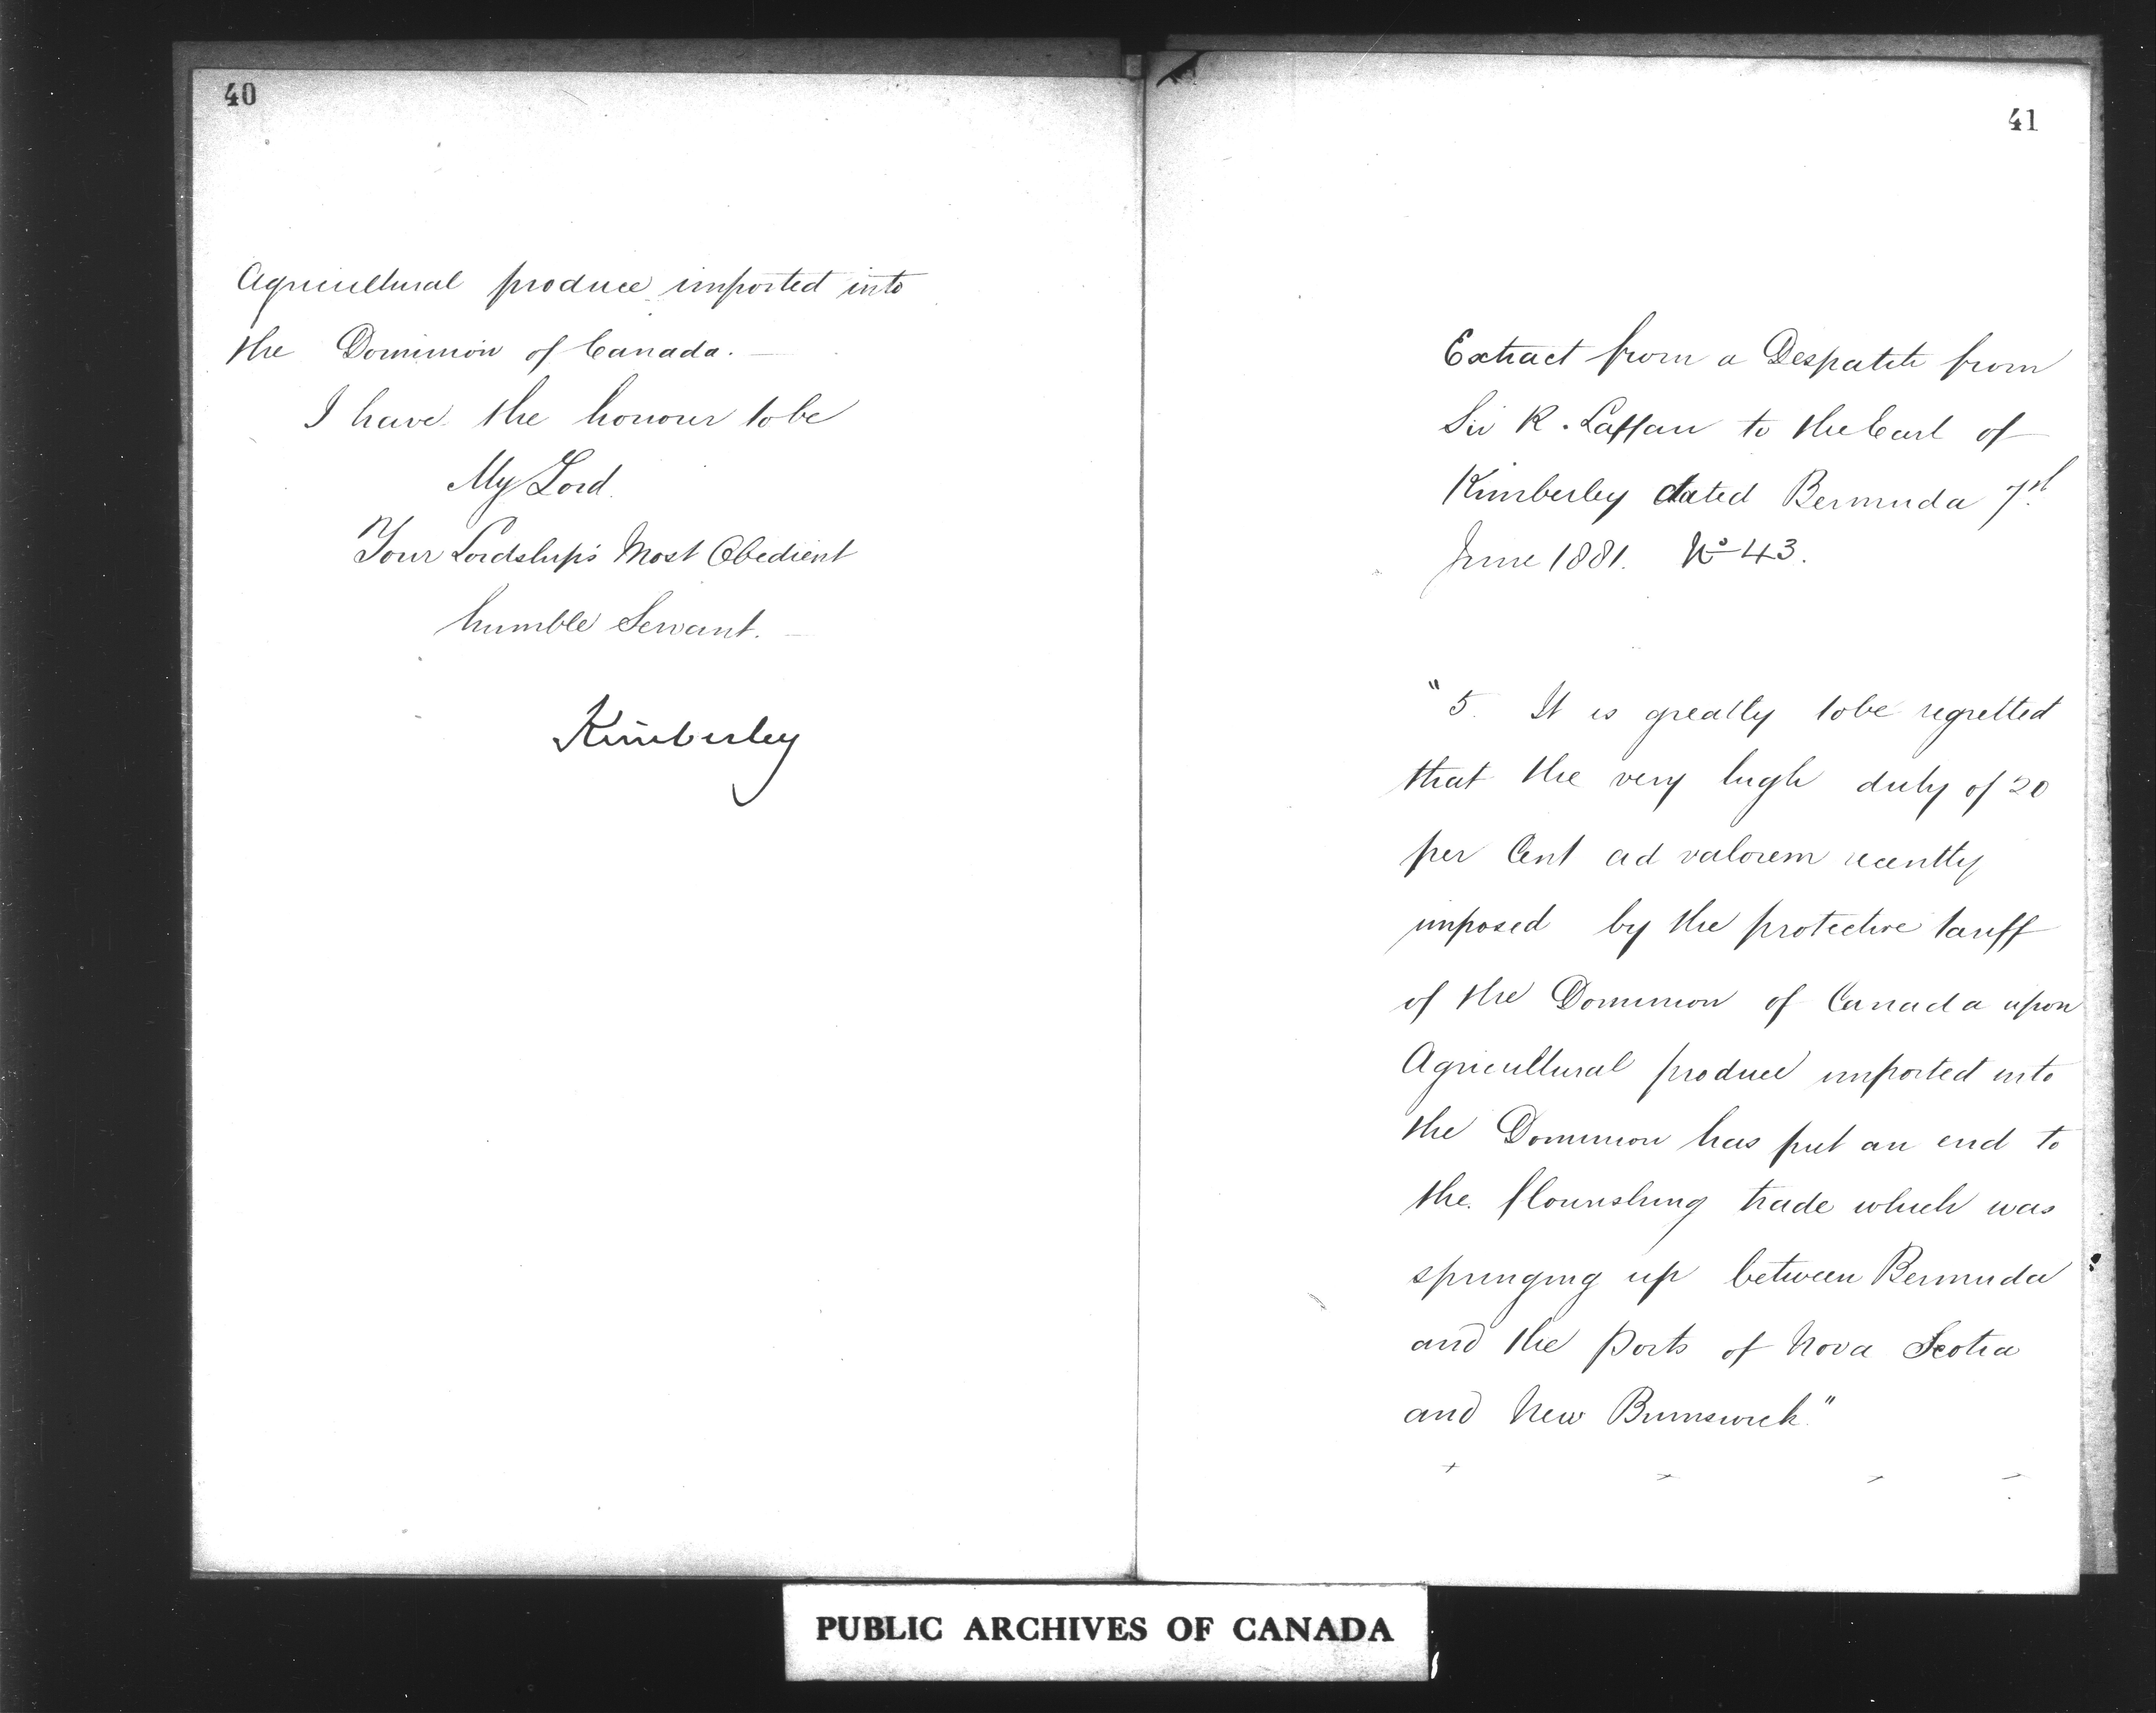 40
Agricultural produce imported into
the Dominion of Canada. —
I have the honour to be
My Lord.
Your Lordship's Most Obedient
humble Servant. —
Kimberley
41
Extract from a Despatch from
Sir R. Laffan to the Earl of
Kimberley dated Bermuda 7th
June 1881. No 43.
"5. It is greatly to be regretted
that the very high duty of 20
per Cent ad valorem recently
imposed by the protective tariff
of the Dominion of Canada upon
Agricultural produce imported into
the Dominion has put an end to
the flourishing trade which was
springing up between Bermuda
and the Ports of Nova Scotia
and New Brunswick."
PUBLIC ARCHIVES OF CANADA